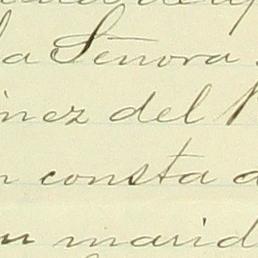 la Señora
nez del
n consta a
su marid